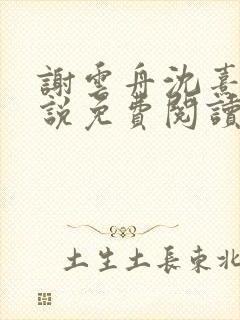 謝雲舟沈熹
說免費閱讀
土生土長東北